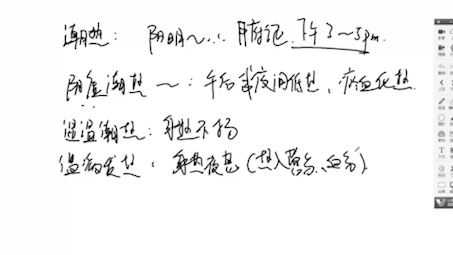 潮热： 阳明～∵ 日晡 下午3～5pm.
阴虚潮热～： 午后或夜间低热、瘀血化热
湿温潮热：身热不扬
温病发热：身热夜甚（热入营分、血分）